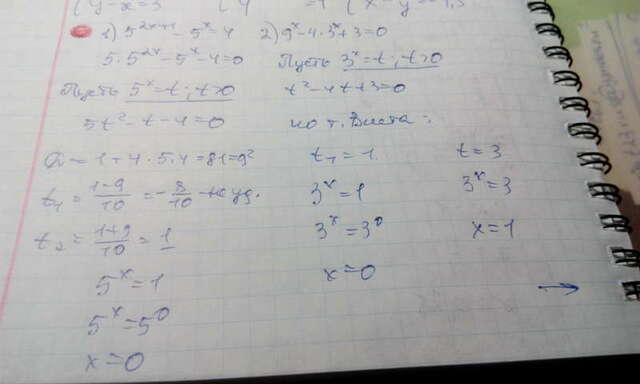 1) 5^(2x+1) - 5^x = 4
5·5^(2x) - 5^x - 4 = 0
Пусть 5^x = t; t>0
5t² - t - 4 = 0
D = 1 + 4·5·4 = 81 = 9²
t₁ = (1-9)/10 = -8/10 - не уд.
t₂ = (1+9)/10 = 1
5^x = 1
5^x = 5^0
x = 0
2) 9^x - 4·3^x + 3 = 0
Пусть 3^x = t; t>0
t² - 4t + 3 = 0
по т. Виета:
t₁ = 1 t = 3
3^x = 1 3^x = 3
3^x = 3^0 x = 1
x = 0